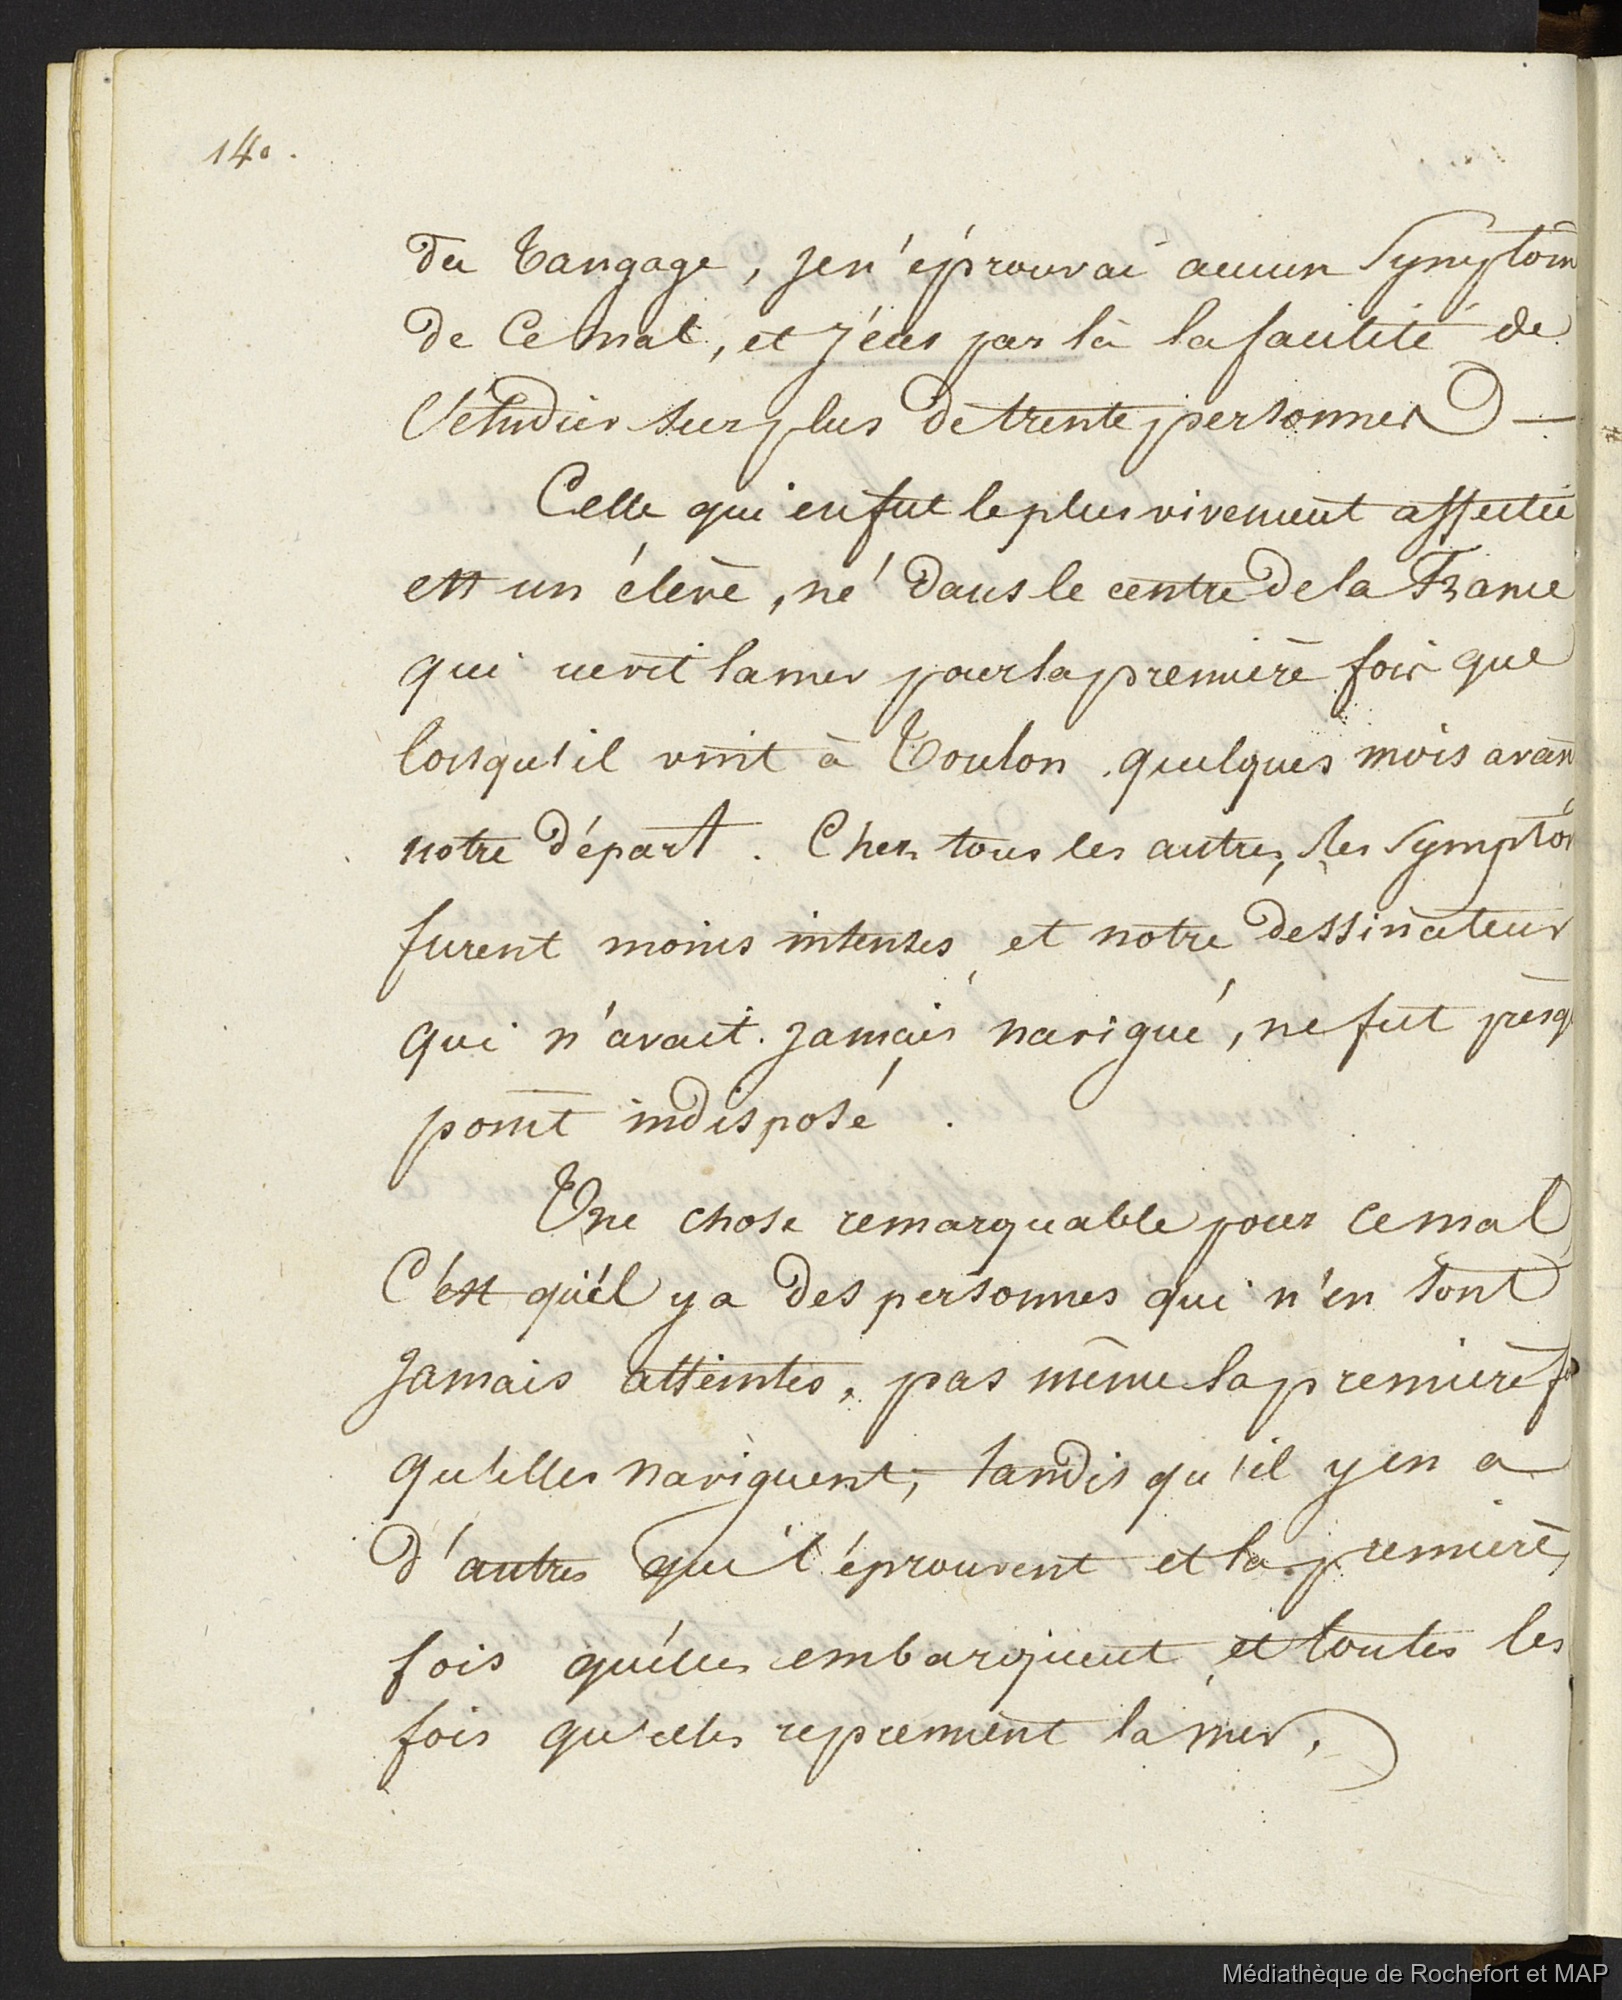 140.
du tangage, je n'éprouvai aucun Symptôm
de ce mal, et j'eus par là la facilité de
l'étudier sur plus de trente personnes —
Celle qui en fut le plus vivement affectée
est un élève, né dans le centre de la France
qui ne vit la mer pour la première fois que
lorsqu'il vint à Toulon quelques mois avan
notre départ. Chez tous les autres, les Symptô
furent moins intenses, et notre dessinateur
qui n'avait jamais navigué, ne fut presq
point indisposé.
Une chose remarquable pour ce mal
C'est qu'il y a des personnes qui n'en sont
jamais atteintes, pas même la première fo
qu'elles naviguent, tandis qu'il y en a
d'autres qui l'éprouvent et la première
fois qu'elles embarquent et toutes les
fois qu'elles reprennent la mer.
Médiathèque de Rochefort et MAP